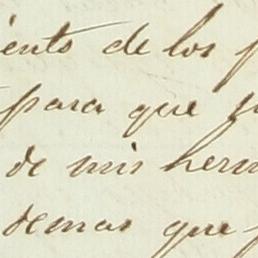 iento de los p
para que p
de mis herm
demas que f